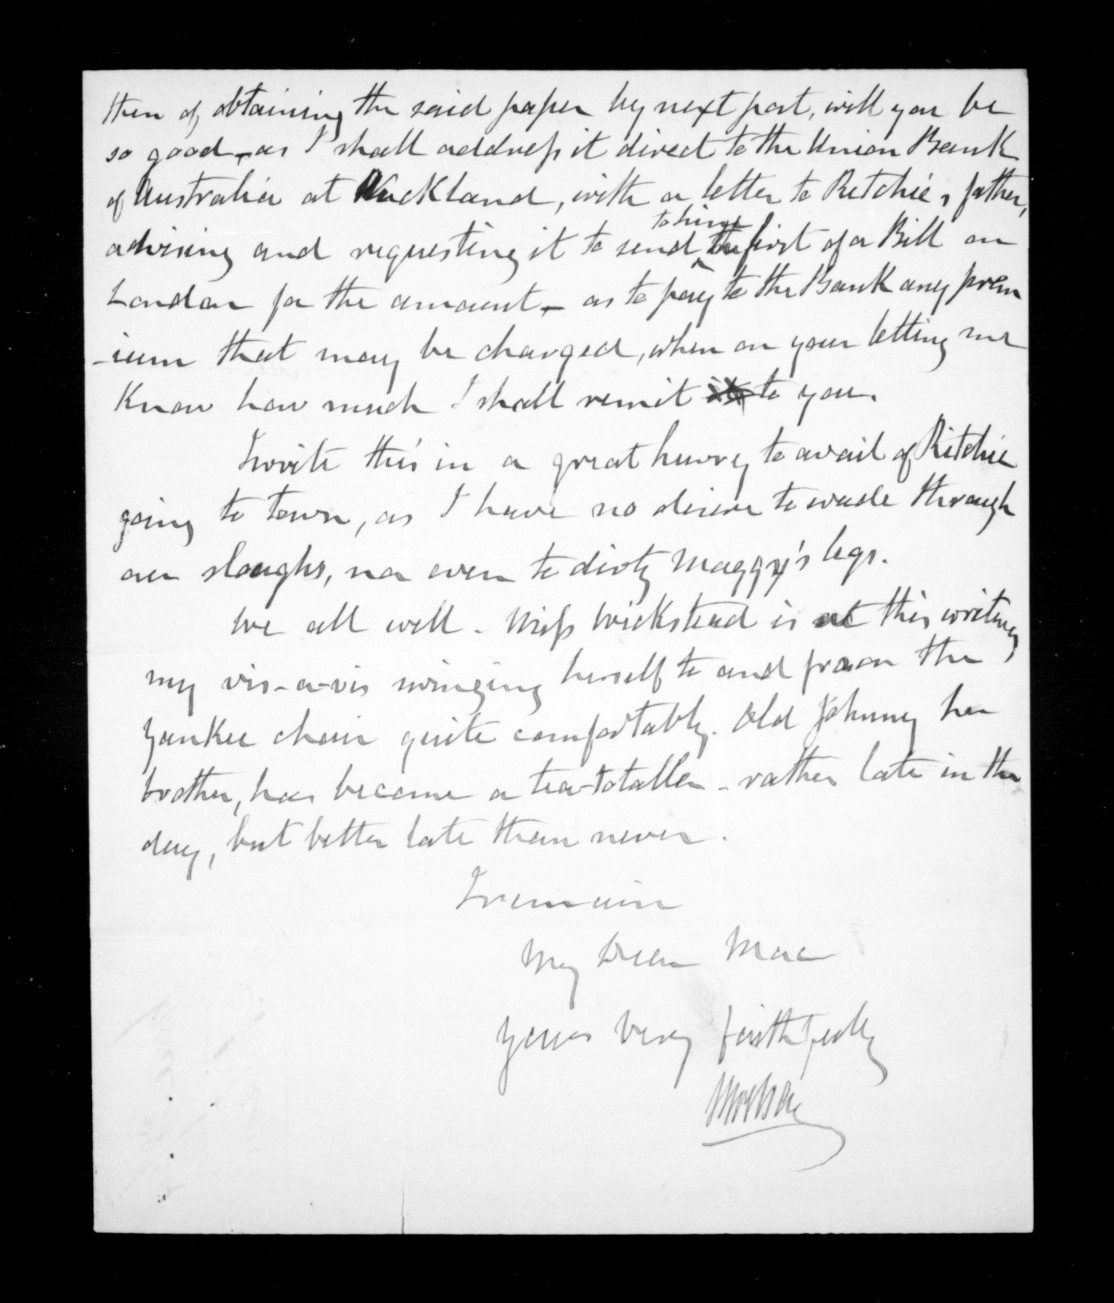 then of obtaining the said paper by next post, will you be
so good - as I shall address it direct to the Union Bank
of Australia at Auckland, with a letter to Ritchie's father,
advising and requesting it to send to him the first of a Bill on
London for the amount - as to pay to the Bank any prem
-ium that may be charged, when on your letting me
Know how much I shall remit it to you.
I write this in a great hurry to avail of Ritchie
going to town, as I have no desire to wade through
our sloughs, nor even to dirty Maggy's legs.
We all well - Miss Wicksteed is at this writing
my vis-a-vis swinging herself to and fro on the
Yankee chair quite comfortably. Old Johnny her
brother, has become a tea-totaller - rather late in the
day, but better late than never.
I remain
My Dear Mac
Yours Very faithfully